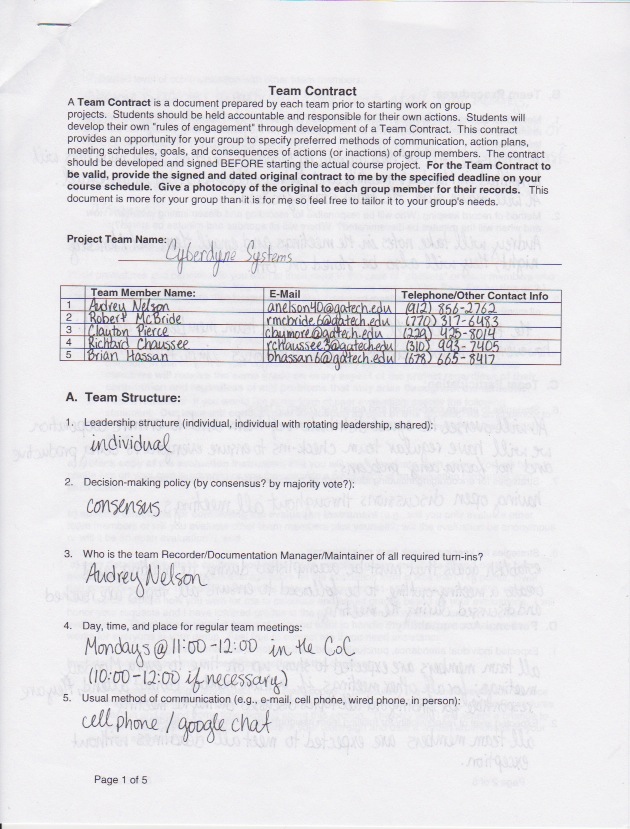 Team Contract
A Team Contract is a document prepared by each team prior to starting work on group
projects. Students should be held accountable and responsible for their own actions. Students will
develop their own "rules of engagement" through development of a Team Contract. This contract
provides an opportunity for your group to specify preferred methods of communication, action plans,
meeting schedules, goals, and consequences of actions (or inactions) of group members. The contract
should be developed and signed BEFORE starting the actual course project. For the Team Contract to
be valid, provide the signed and dated original contract to me by the specified deadline on your
course schedule. Give a photocopy of the original to each group member for their records. This
document is more for your group than it is for me so feel free to tailor it to your group's needs.
Project Team Name: Cyberdyne Systems
Team Member Name: E-Mail Telephone/Other Contact Info
1 Audrey Nelson anelson40@gatech.edu (912) 856-2762
2 Robert McBride rmcbride6@gatech.edu (770) 317-6483
3 Clayton Pierce claymore@gatech.edu (229) 425-8014
4 Richard Chaussee rchaussee3@gatech.edu (310) 993-7405
5 Brian Hassan bhassan6@gatech.edu (678) 665-8417
A. Team Structure:
1. Leadership structure (individual, individual with rotating leadership, shared):
individual
2. Decision-making policy (by consensus? by majority vote?):
consensus
3. Who is the team Recorder/Documentation Manager/Maintainer of all required turn-ins?
Audrey Nelson
4. Day, time, and place for regular team meetings:
Mondays @ 11:00-12:00 in the CoC
(10:00-12:00 if necessary)
5. Usual method of communication (e.g., e-mail, cell phone, wired phone, in person):
cell phone / google chat
Page 1 of 5